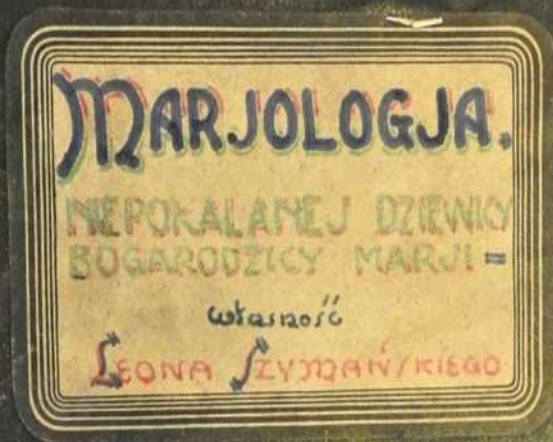 MARJOLOGJA.
NIEPOKALANEJ DZIEWICY
BOGARODZICY MARJI =
własność
LEONA SZYMAŃSKIEGO